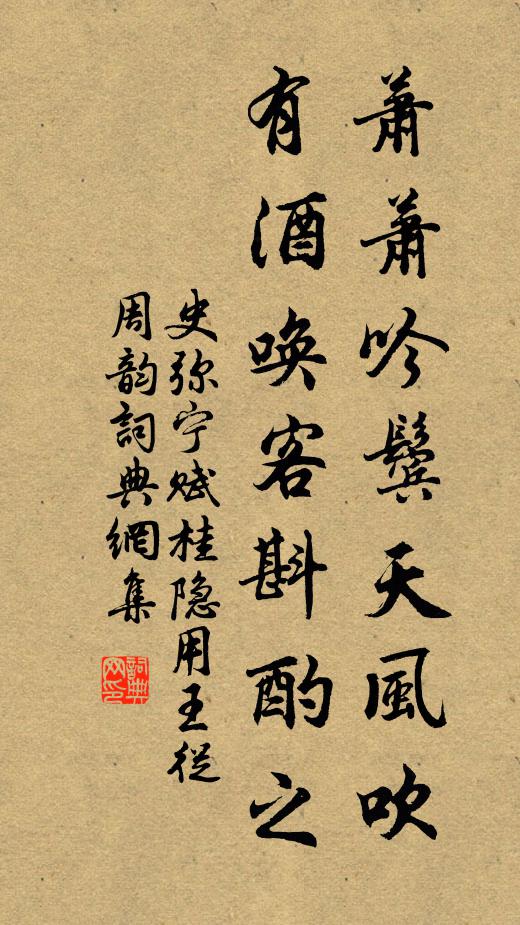 蕭蕭吟鬢天風吹
有酒唤客斟酌之
史弥宁赋桂隐用王從
周韵詞典網集
詞典網印